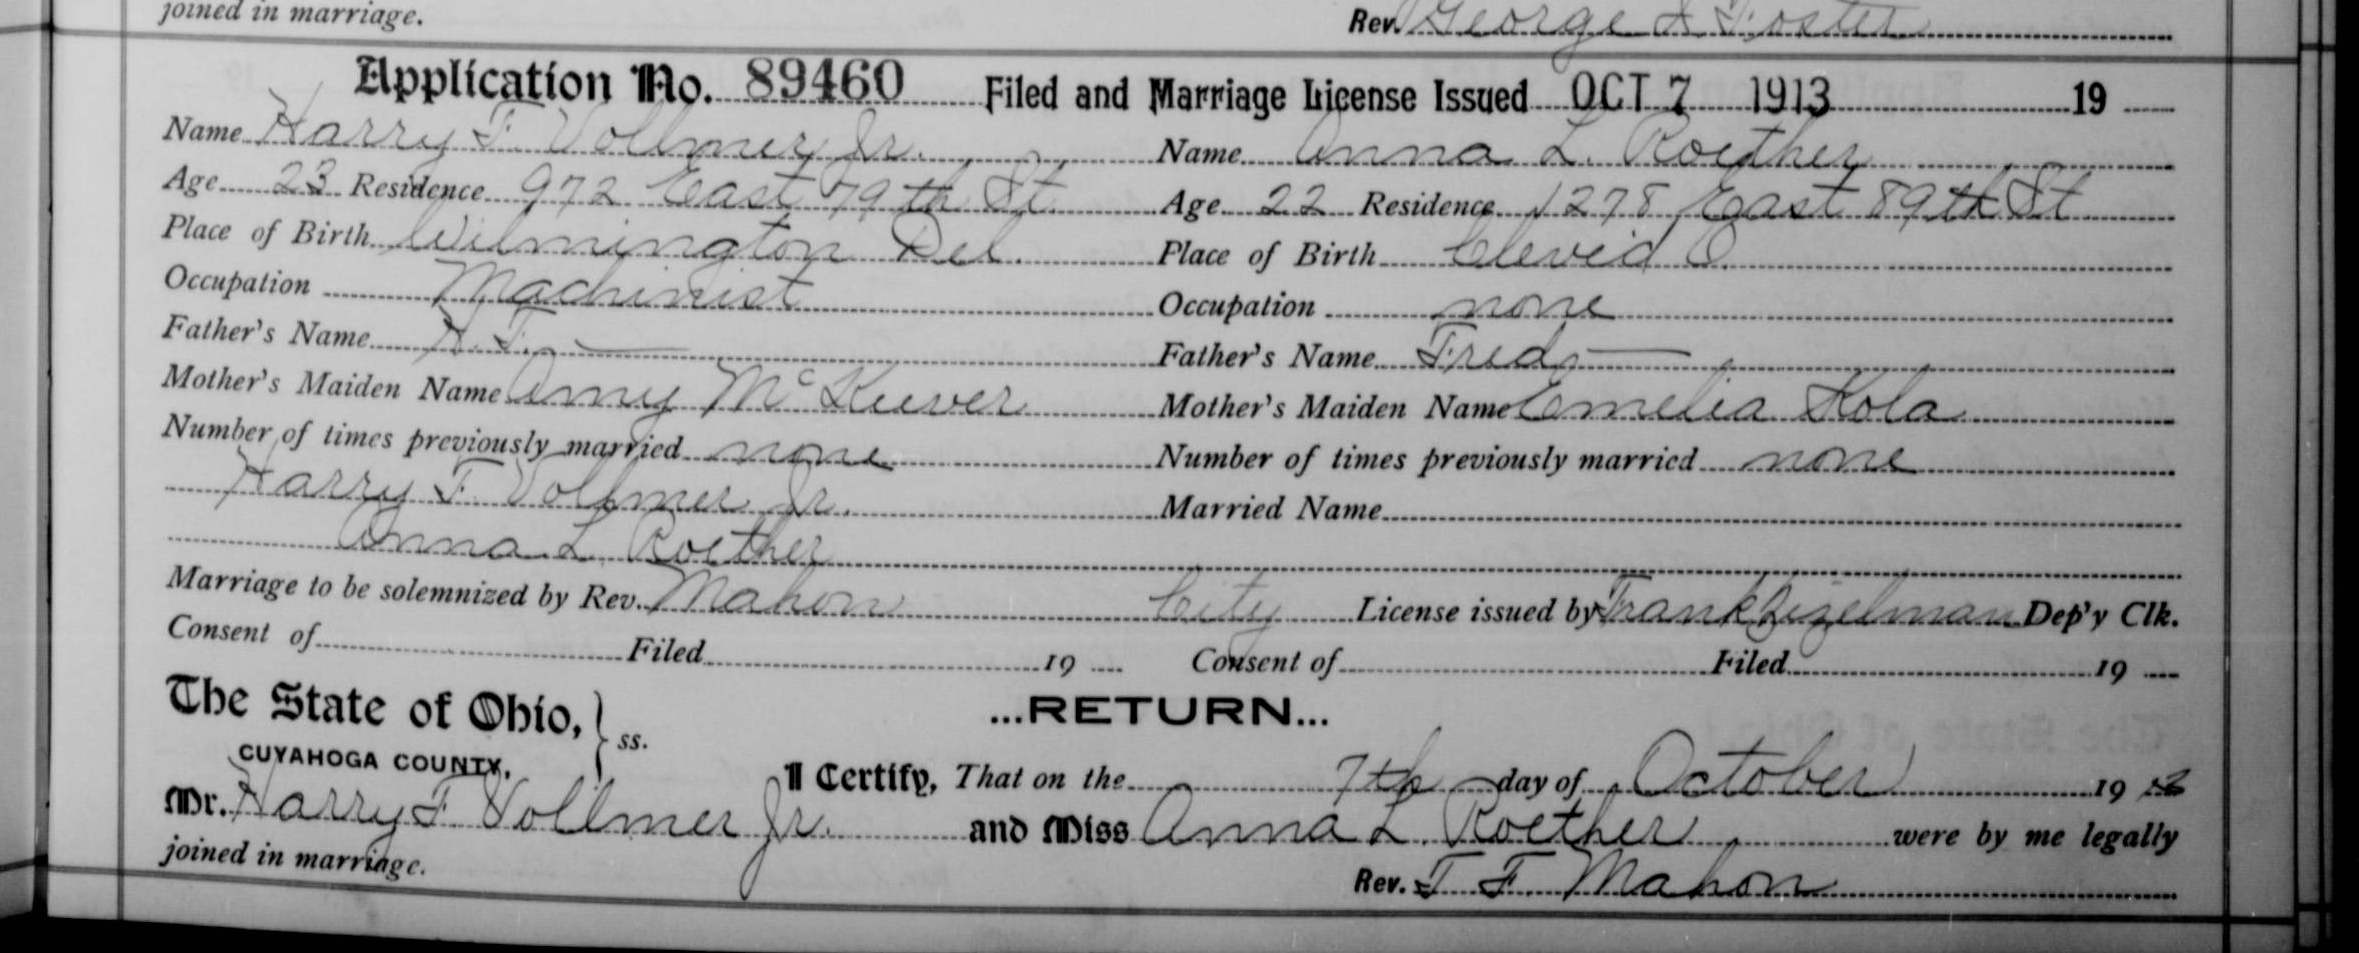 joined in marriage. Rev. George J Foster
Application No. 89460 Filed and Marriage License Issued OCT 7 1913 19
Name Harry F. Vollmer Jr. Name Anna L. Roether
Age 23 Residence 972 East 79th St Age 22 Residence 1278 East 89th St
Place of Birth Wilmington Del. Place of Birth Cleveid O.
Occupation Machinist Occupation none
Father's Name H. F. — Father's Name Fred —
Mother's Maiden Name Amy McKeever Mother's Maiden Name Emelia Kola
Number of times previously married none Number of times previously married none
Harry F. Vollmer Jr. Married Name
Anna L. Roether
Marriage to be solemnized by Rev. Mahon City License issued by Frank Zizelman Dep'y Clk.
Consent of Filed 19 Consent of Filed 19
The State of Ohio, } ss. ...RETURN...
CUYAHOGA COUNTY, I Certify, That on the 7th day of October 19 13
Mr. Harry F Vollmer Jr. and Miss Anna L. Roether were by me legally
joined in marriage. Rev. T. F. Mahon